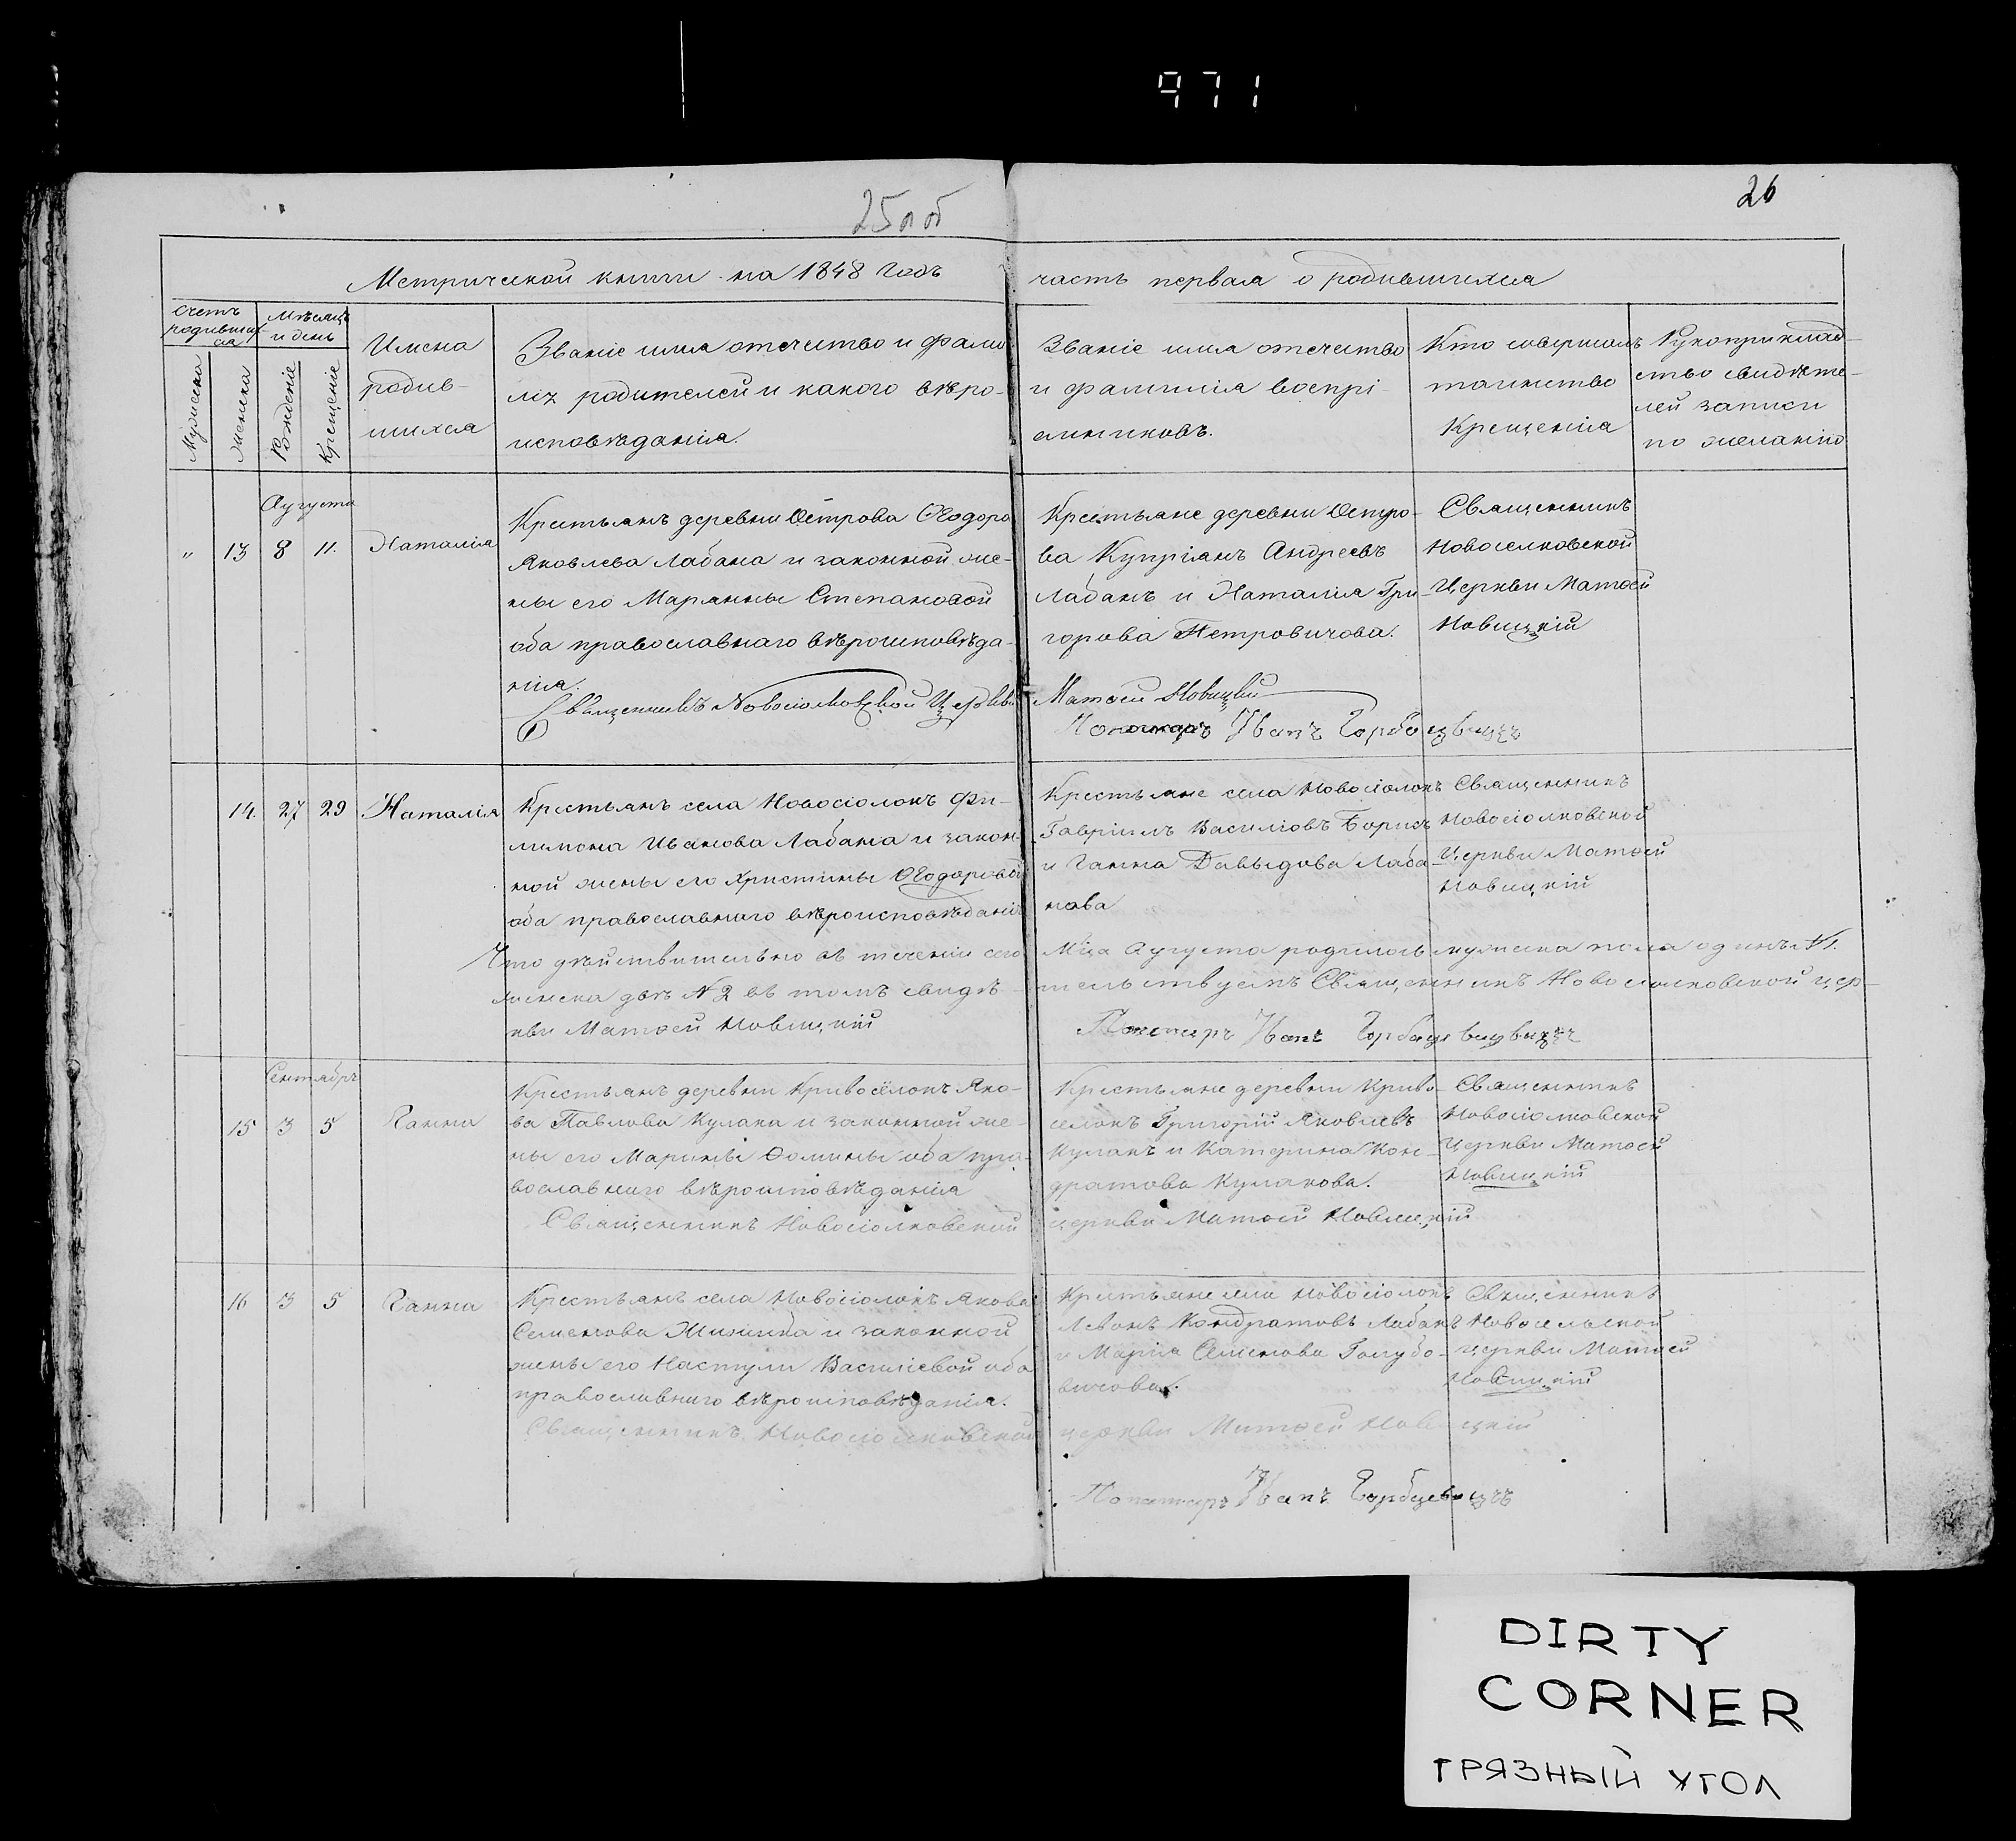 971
25 об
26
Метрической книги на 1848 годъ
часть первая о родившихся
Счетъ родившихся
Мужеска
Женска
Мѣсяцъ и день
Рожденіе
Крещеніе
Имена
родив-
шихся
Званіе имя отечество и фами
лія родителей и какого вѣро-
исповѣданія.
Званіе имя отечество
и фамилія воспрі-
емниковъ.
Кто совершалъ
таинство
Крещенія
Рукоприклад-
ство свидѣте-
лей записи
по желанію
Августа
„ 13 8 11. Наталія
Крестьянъ деревни Острова Ѳеодора
Яковлева Лабана и законной же-
ны его Марянны Степановой
оба православнаго вѣроисповѣда-
нія.
Священникъ Новосіолковской Церкви
Крестьяне деревни Остро-
ва Купріянъ Андреевъ
Лабанъ и Наталія Гри-
горова Петровичова.
Матѳей Новицкій
Пономаръ Иванъ
Священникъ
Новоселковской
Церкви Матѳей
Новицкій
14. 27 29 Наталія
Крестьянъ села Новосіолокъ Фи-
лимона Иванова Лабана и закон-
ной жены его Христины Ѳеодоровой
оба православнаго вѣроисповѣданія
Что дѣйствительно въ теченіи сего
женска двѣ N 2 въ томъ свидѣ-
кви Матѳей Новицкій
Крестьяне села Новосіолокъ
Гавріилъ Василіовъ Борисъ
и Ганна Давыдова Лаба-
нова
Мца Августа родилось мужеска пола одинъ N 1.
тельствуемъ Священникъ Новосіолковской цер-
Пономаръ Иванъ
Священникъ
Новосіолковской
Церкви Матѳей
Новицкій
Сентябръ
15 3 5 Ганна
Крестьянъ деревни Кривосёлокъ Яко-
ва Павлова Кулака и законной же-
ны его Марины Ѳомины оба пра-
вославнаго вѣроисповѣданія
Священникъ Новосіолковскій
Крестьяне деревни Криво-
селокъ Григорій Яковлевъ
Кулакъ и Катерина Кон-
дратова Кулакова.
церкви Матѳей Новицкій
Священникъ
Новосіолковской
Церкви Матѳей
Новицкій
16 3 5 Ганна
Крестьянъ села Новосіолокъ Якова
Семенова и законной
жены его Настули Василіевой оба
православнаго вѣроисповѣданія.
Священникъ Новосіолковской
Крестьяне села Новосіолокъ
Левонъ Кондратовъ Лабанъ
и Марія Семенова Голубо-
вичова.
церкви Матѳей Новицкій
Пономаръ Иванъ
Священникъ
Новосельской
церкви Матѳей
Новицкій
DIRTY
CORNER
ГРЯЗНЫЙ УГОЛ